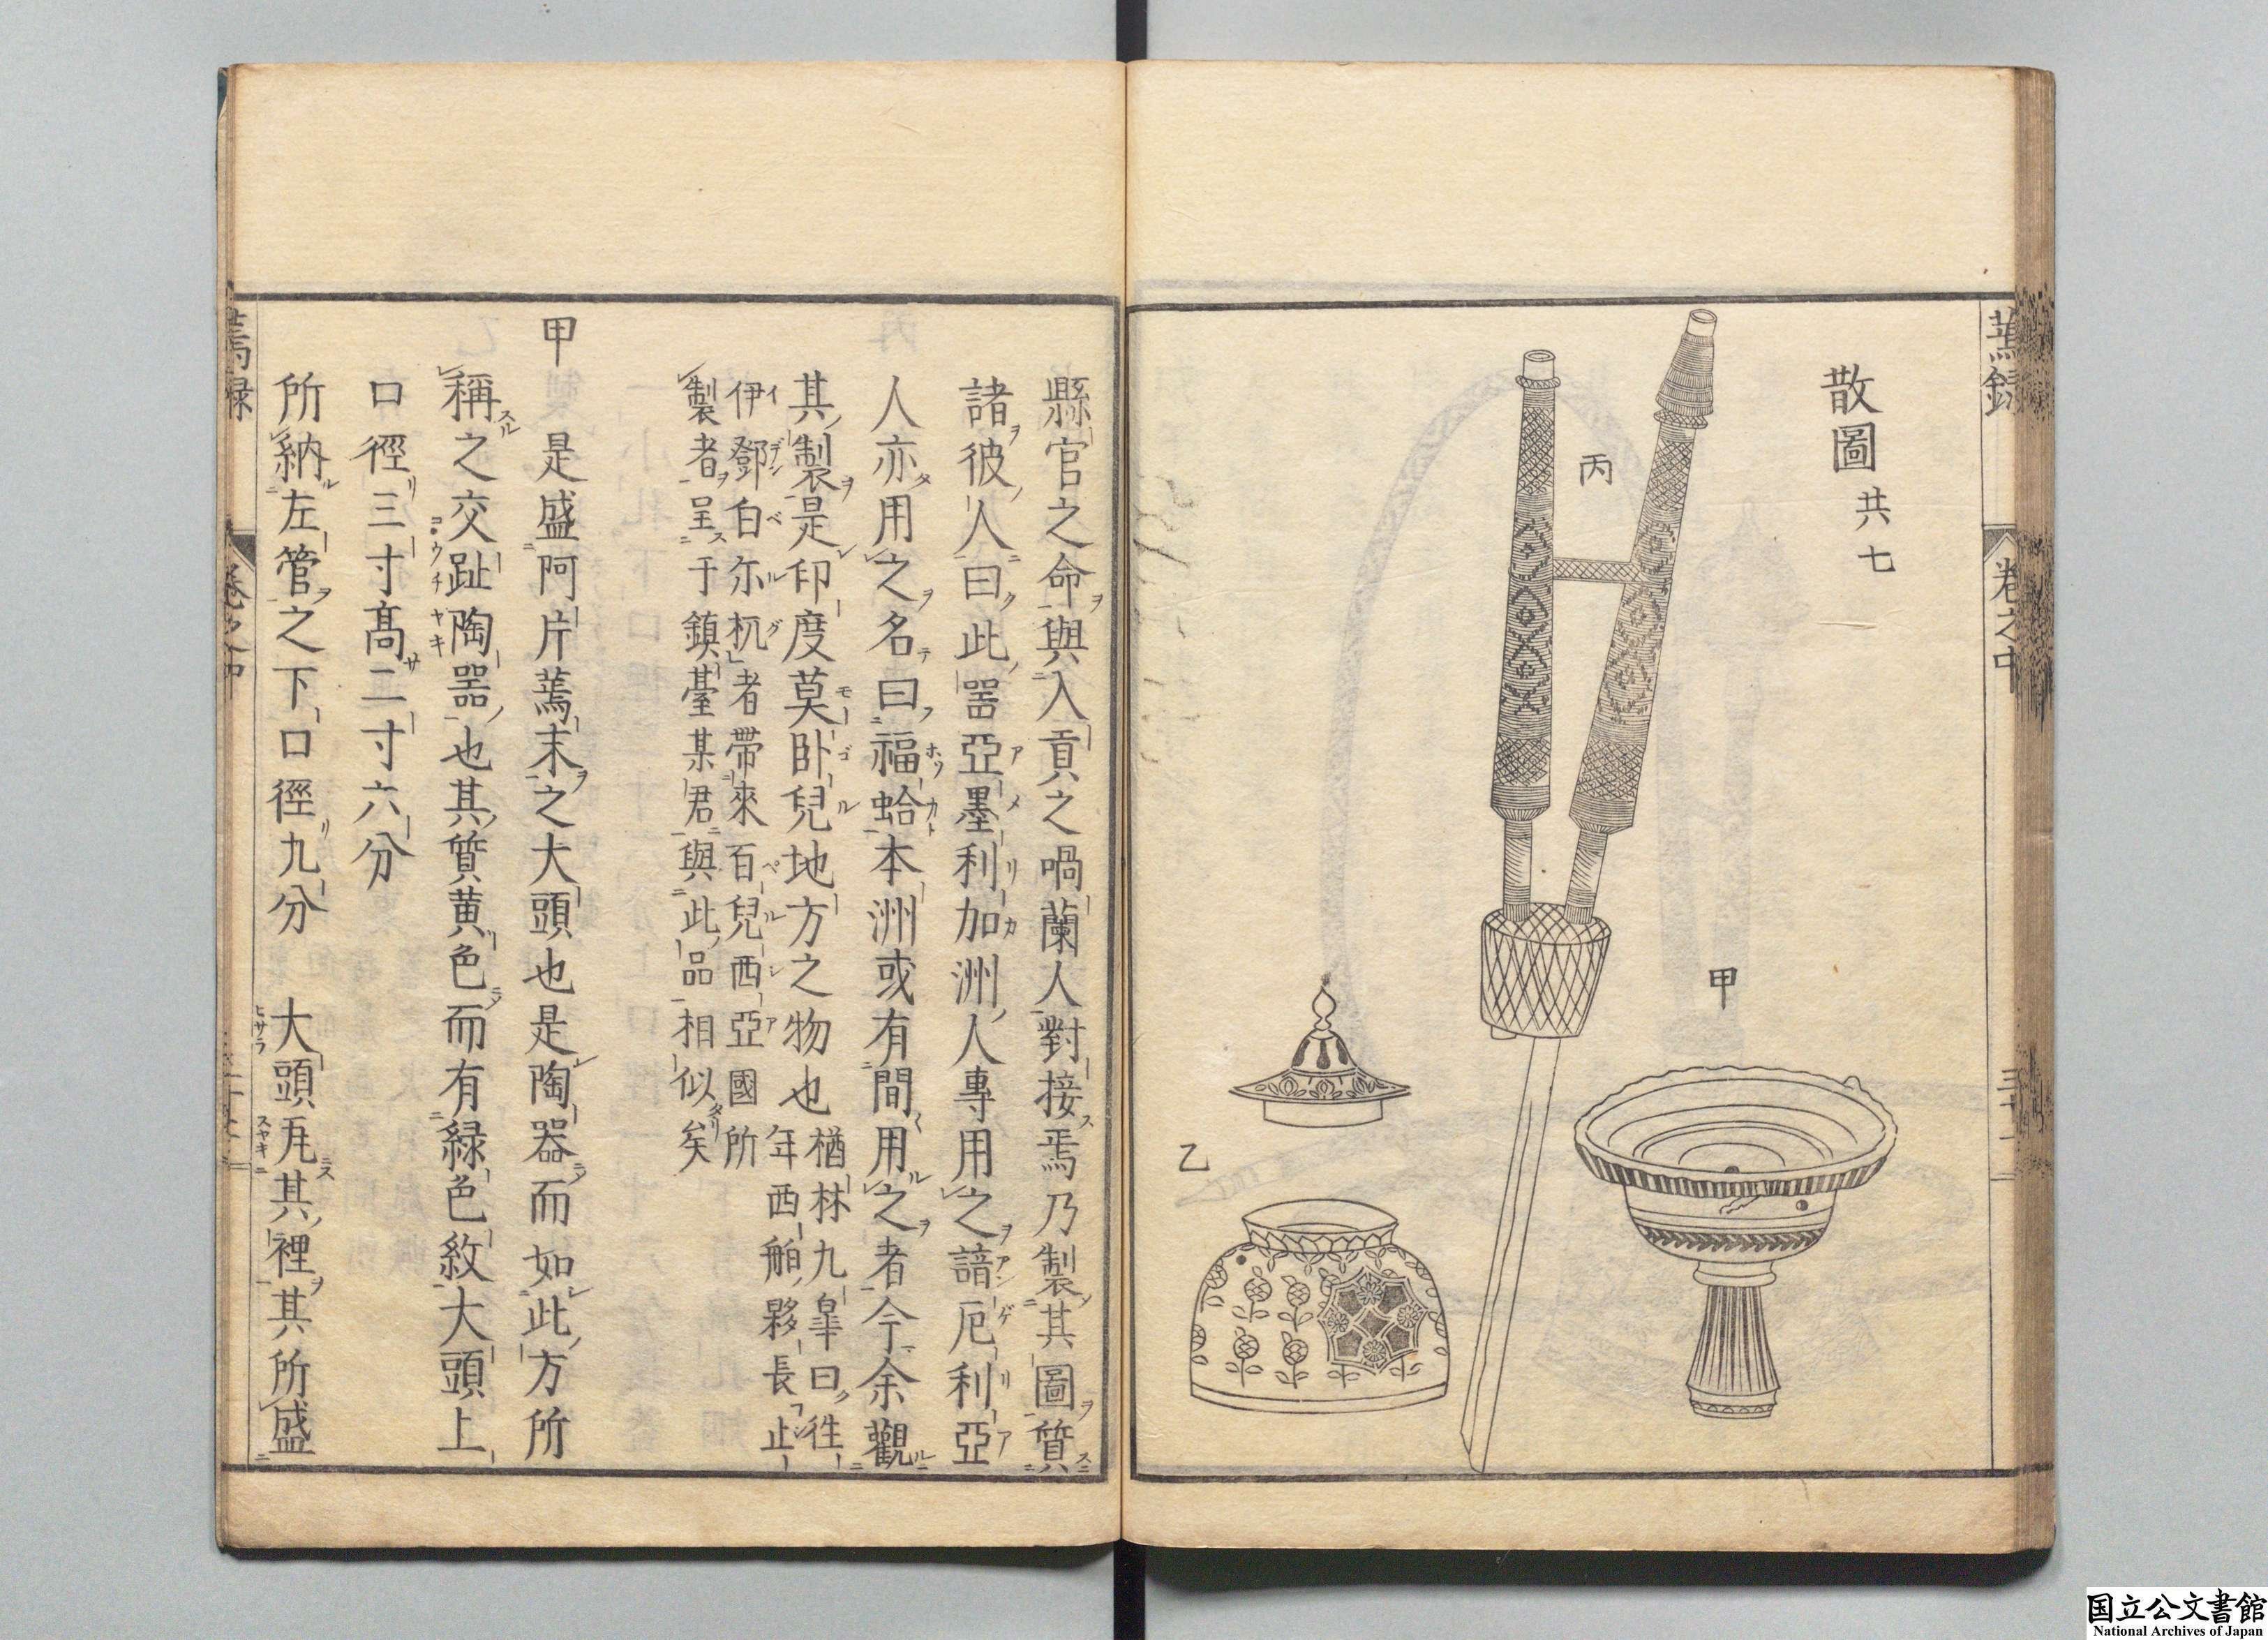 蔫録
卷之中
散圖 共七
丙
甲
乙
縣官之命與入貢之喎蘭人對接焉乃製其圖質
諸彼人曰此噐亞墨利加洲人專用之諳厄利亞
人亦用之名曰福蛤本洲或有間用之者今余觀
其製是印度莫臥兒地方之物也 楢林九皐曰徃
年西舶夥長止
伊鄧白尓机者帶來百兒西亞國所
製者呈于鎮臺某君與此品相似矣
甲 是盛阿片蔫末之大頭也是陶器而如此方所
稱之交趾陶噐也其質黄色而有緑色紋大頭上
口徑三寸髙二寸六分
所納左管之下口徑九分 大頭𠀋其裡其所盛
蔫録
卷之中
国立公文書館
National Archives of Japan